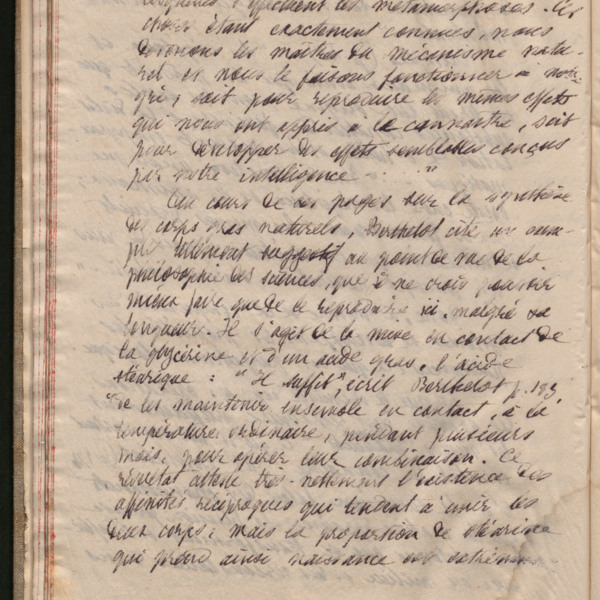 lesquelles s'effectuent les métamorphoses. Ces
choses étant exactement connues, nous
devenons les maîtres du mécanisme natu-
rel et nous le faisons fonctionner à notre
gré, soit pour reproduire les mêmes effets
qui nous ont appris à le connaître, soit
pour développer des effets semblables conçus
par notre intelligence . . "
Au cours de ses pages sur la synthèse
des corps gras naturels, Berthelot cite un exem-
ple tellement suggestif au point de vue de la
philosophie des sciences, que je ne crois pouvoir
mieux faire que de le reproduire ici, malgré sa
longueur. Il s'agit de la mise en contact de
la glycérine et d'un acide gras, l'acide
stéarique : "Il suffit", écrit Berthelot p. 193
"de les maintenir ensemble en contact, à la
température ordinaire, pendant plusieurs
mois, pour opérer leur combinaison. Ce
résultat atteste très-nettement l'existence des
affinités réciproques qui tendent à unir les
deux corps; mais la proportion de stéarine
qui prend ainsi naissance est extrême-